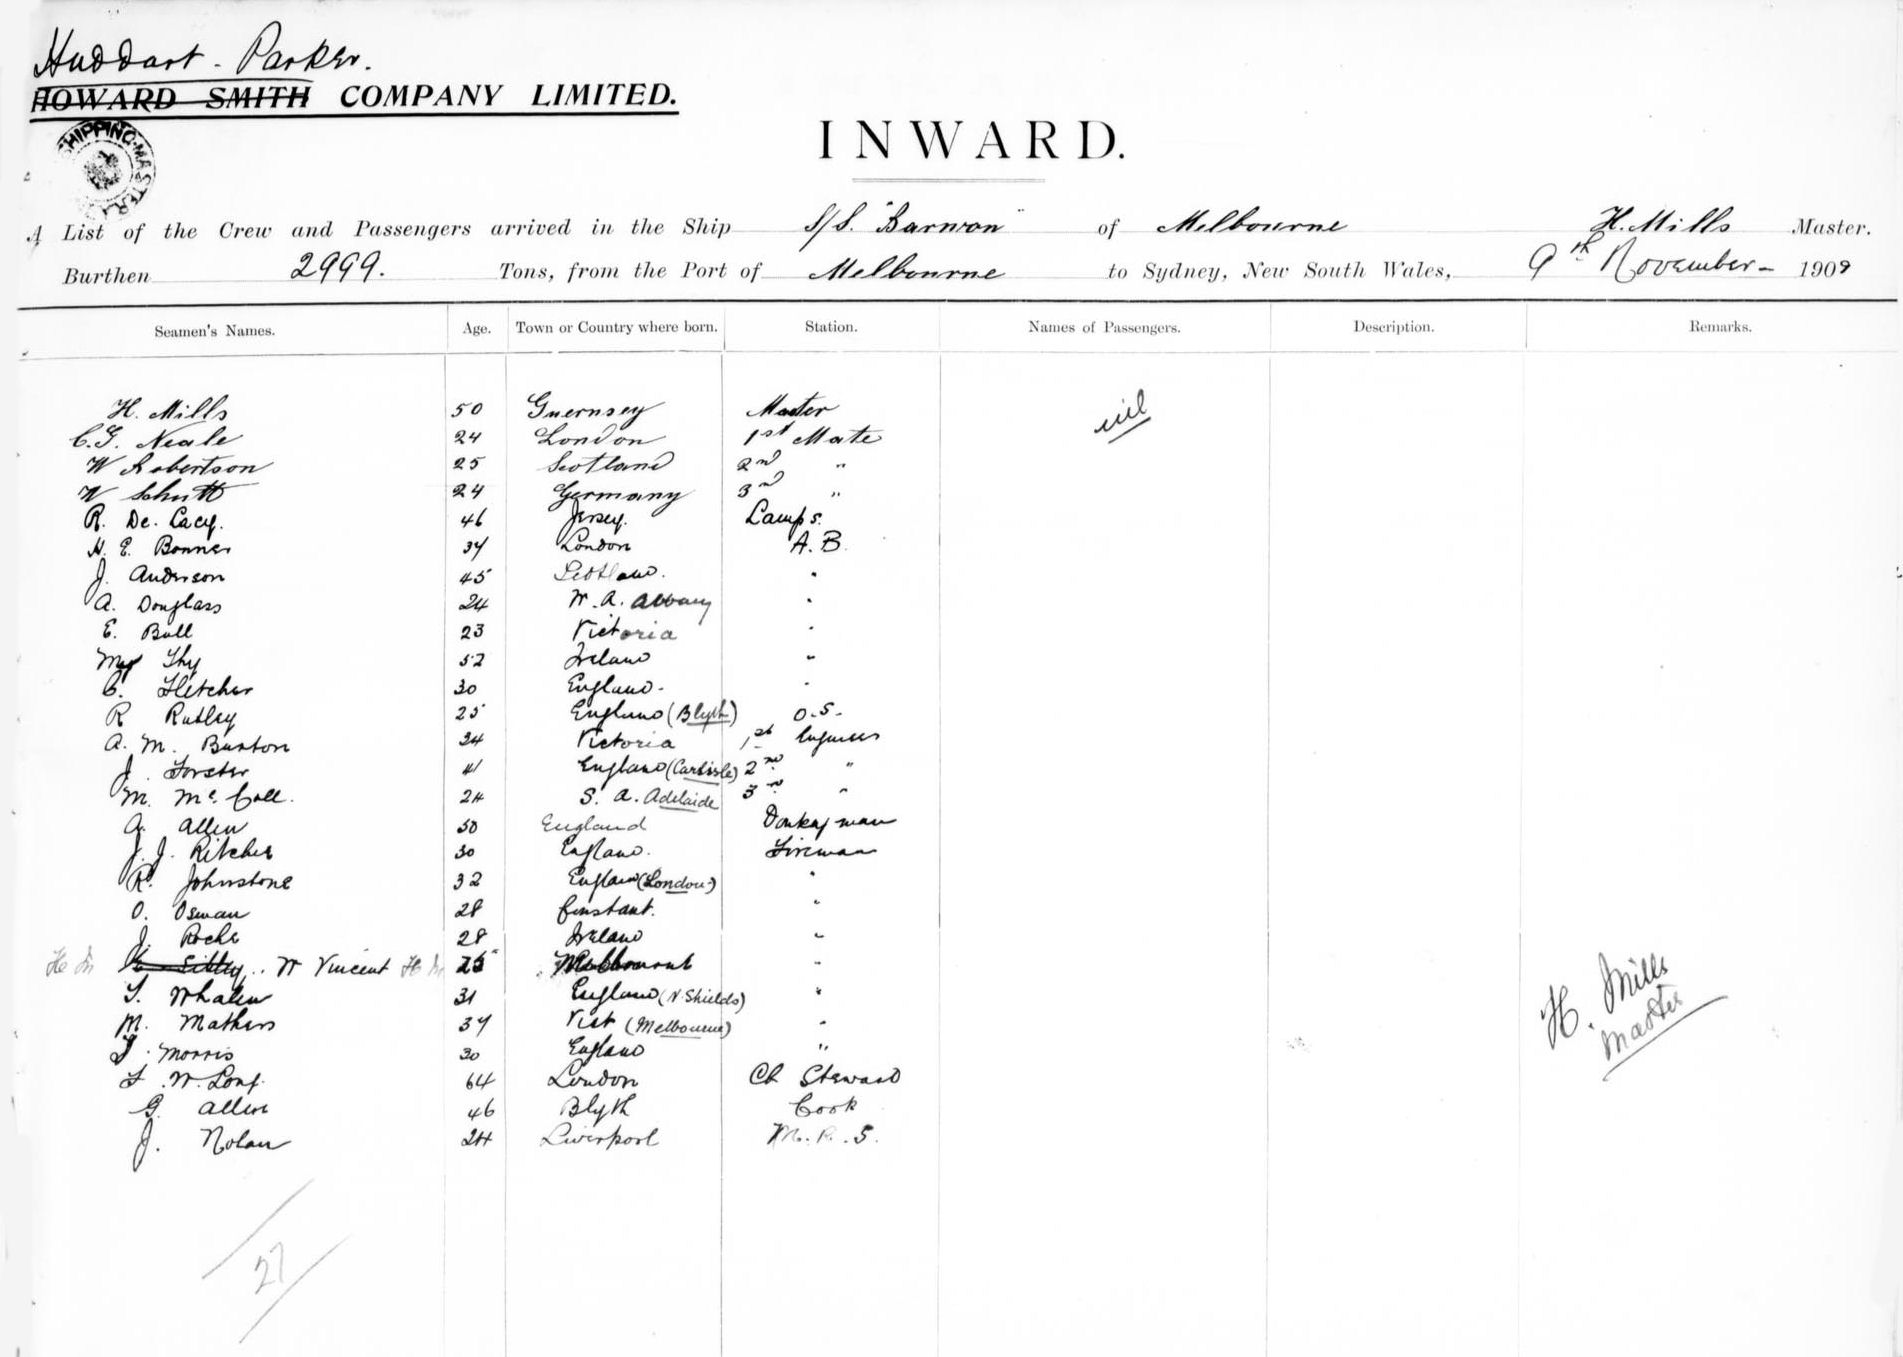 Huddart - Parker.
HOWARD SMITH COMPANY LIMITED.
SHIPPING MASTER
INWARD.
A List of the Crew and Passengers arrived in the Ship S/S. "Barwon" of Melbourne H. Mills Master.
Burthen 2999. Tons, from the Port of Melbourne to Sydney, New South Wales, 9th November - 1909
Seamen's Names. Age. Town or Country where born. Station. Names of Passengers. Description. Remarks.
H. Mills 50 Guernsey Master nil
C.G. Neale 24 London 1st Mate
W Robertson 25 Scotland 2nd "
W Schutt 24 Germany 3rd "
R. De. Lacy. 46 Jersey. Lamps.
H. E. Bonner 34 London A. B.
J. Anderson 45 Scotland. "
A. Douglass 24 W. A. Albany "
E. Bull 23 Victoria "
52 Ireland "
C. Fletcher 30 England - "
R Rutley 25 England (Blyth) O.S.
A. M. Burton 34 Victoria 1st Engineer
J. Forster 41 England (Carlisle) 2nd "
M. McColl. 24 S. A. Adelaide 3rd "
A. Allen 50 England Donkeyman
J. J. Ritchie 30 England. Fireman
R. Johnstone 32 England (London) "
O. Osman 28 Constant. "
J. Roche 28 Ireland "
E Sibley .. W Vincent H M 25 Melbourne "
T. Whalen 31 England (N. Shields) "
M. Mathers 34 Vict (Melbourne) "
J. Morris 30 England "
F. W. Long. 64 London Ch Steward
G. Allen 46 Blyth Cook
J. Nolan 24 Liverpool M. R. S.
H. Mills
Master
27